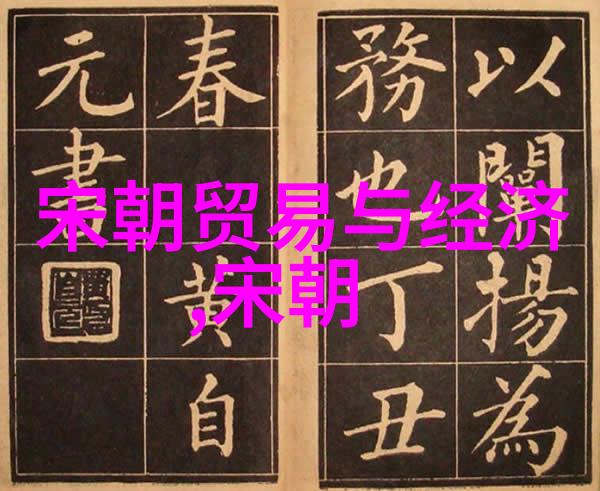 宋朝贸易与经济
,宋朝
以闡揚為
務也丁丑
春黄自
元書